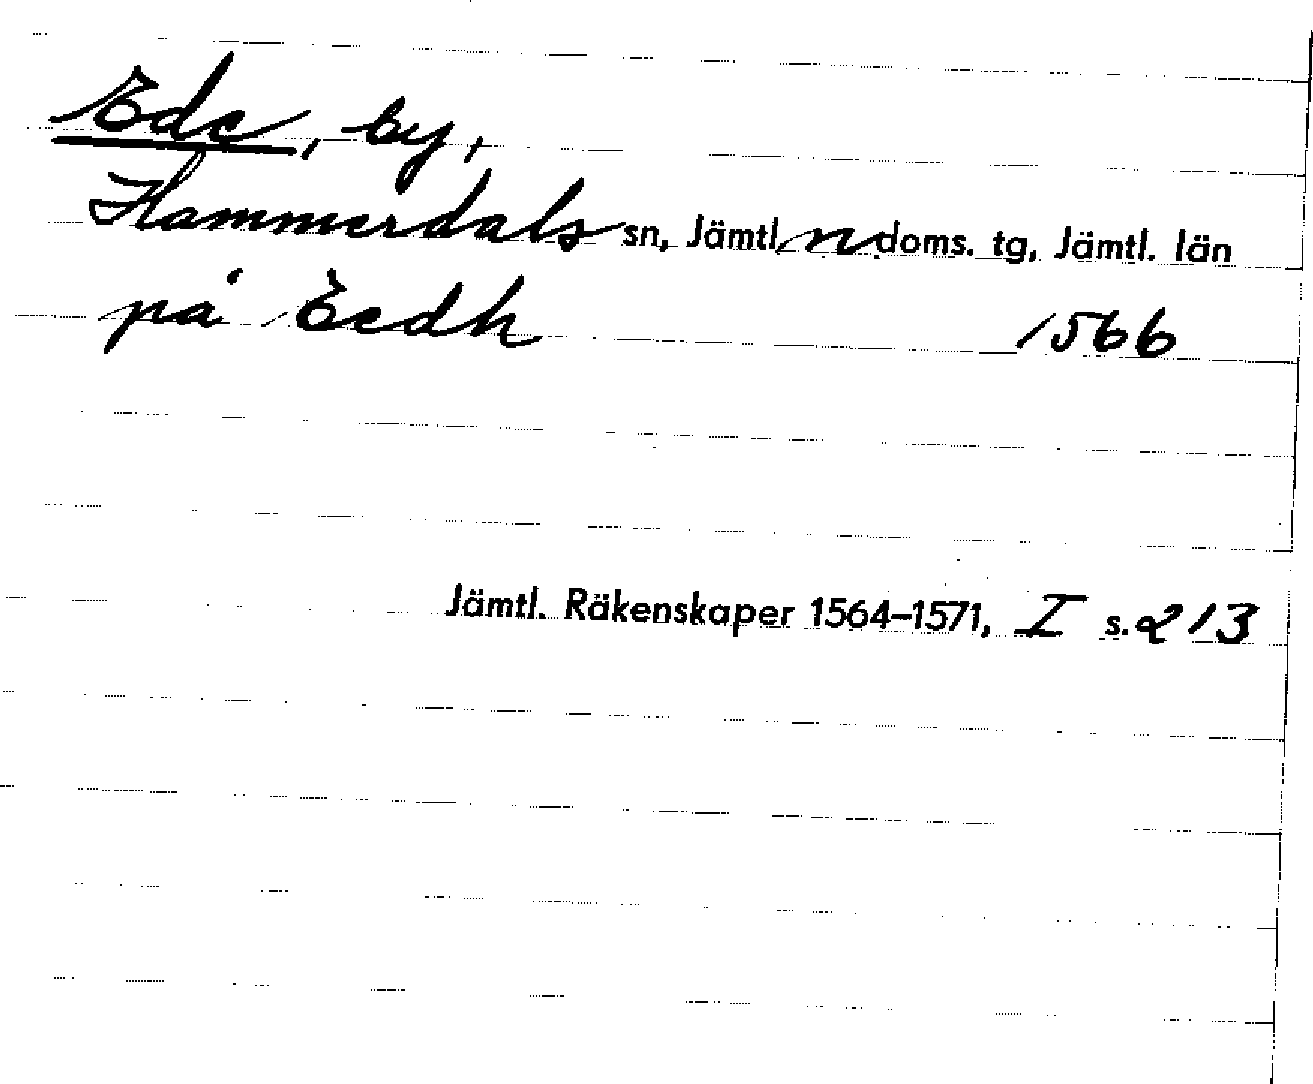 Ede, by,
Hammerdals sn, Jämtl. n doms. tg, Jämtl. län
på Eedh 1566
Jämtl. Räkenskaper 1564–1571, I s. 213